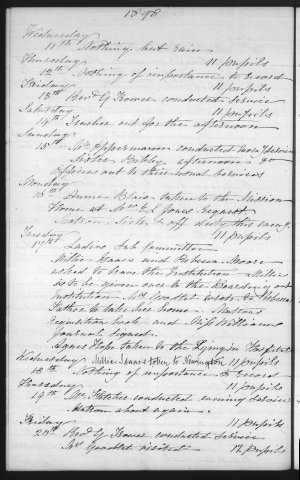 1898
Wednesday
11th Nothing but rain
Thursday 11 pupils
12th Nothing of importance to record
Friday 11 pupils
13th Revd G Howse conducted service
Saturday 11 pupils
14th Teacher out for the afternoon
Sunday
15th Mr Oppermann conducted service
Sister Bibby, afternoon
Officers out to their usual services
Monday
16th taken to the Mission
Home at Mrs Ed Jones request
Matron Sister off duty this evening
Tuesday 11 pupils
17th Ladies Sub Committee
Millie Isaacs and Rebecca Moore
asked to leave the Institution Millie
is to be given over to the Boarding out
Institution Mrs wrote to Rebecca
Father to take her home. Matron's
requisition book and
journal signed.
Agnes Hope taken to the Lying in Hospital
Wednesday Millie Isaacs taken to Newington 11 pupils
18th Nothing of importance to record
Thursday 11 pupils
19th Mr Fletcher conducted evening service
Matron about again.
Friday 11 pupils
20th Revd G Howse conducted service
Mrs visited 12 pupils